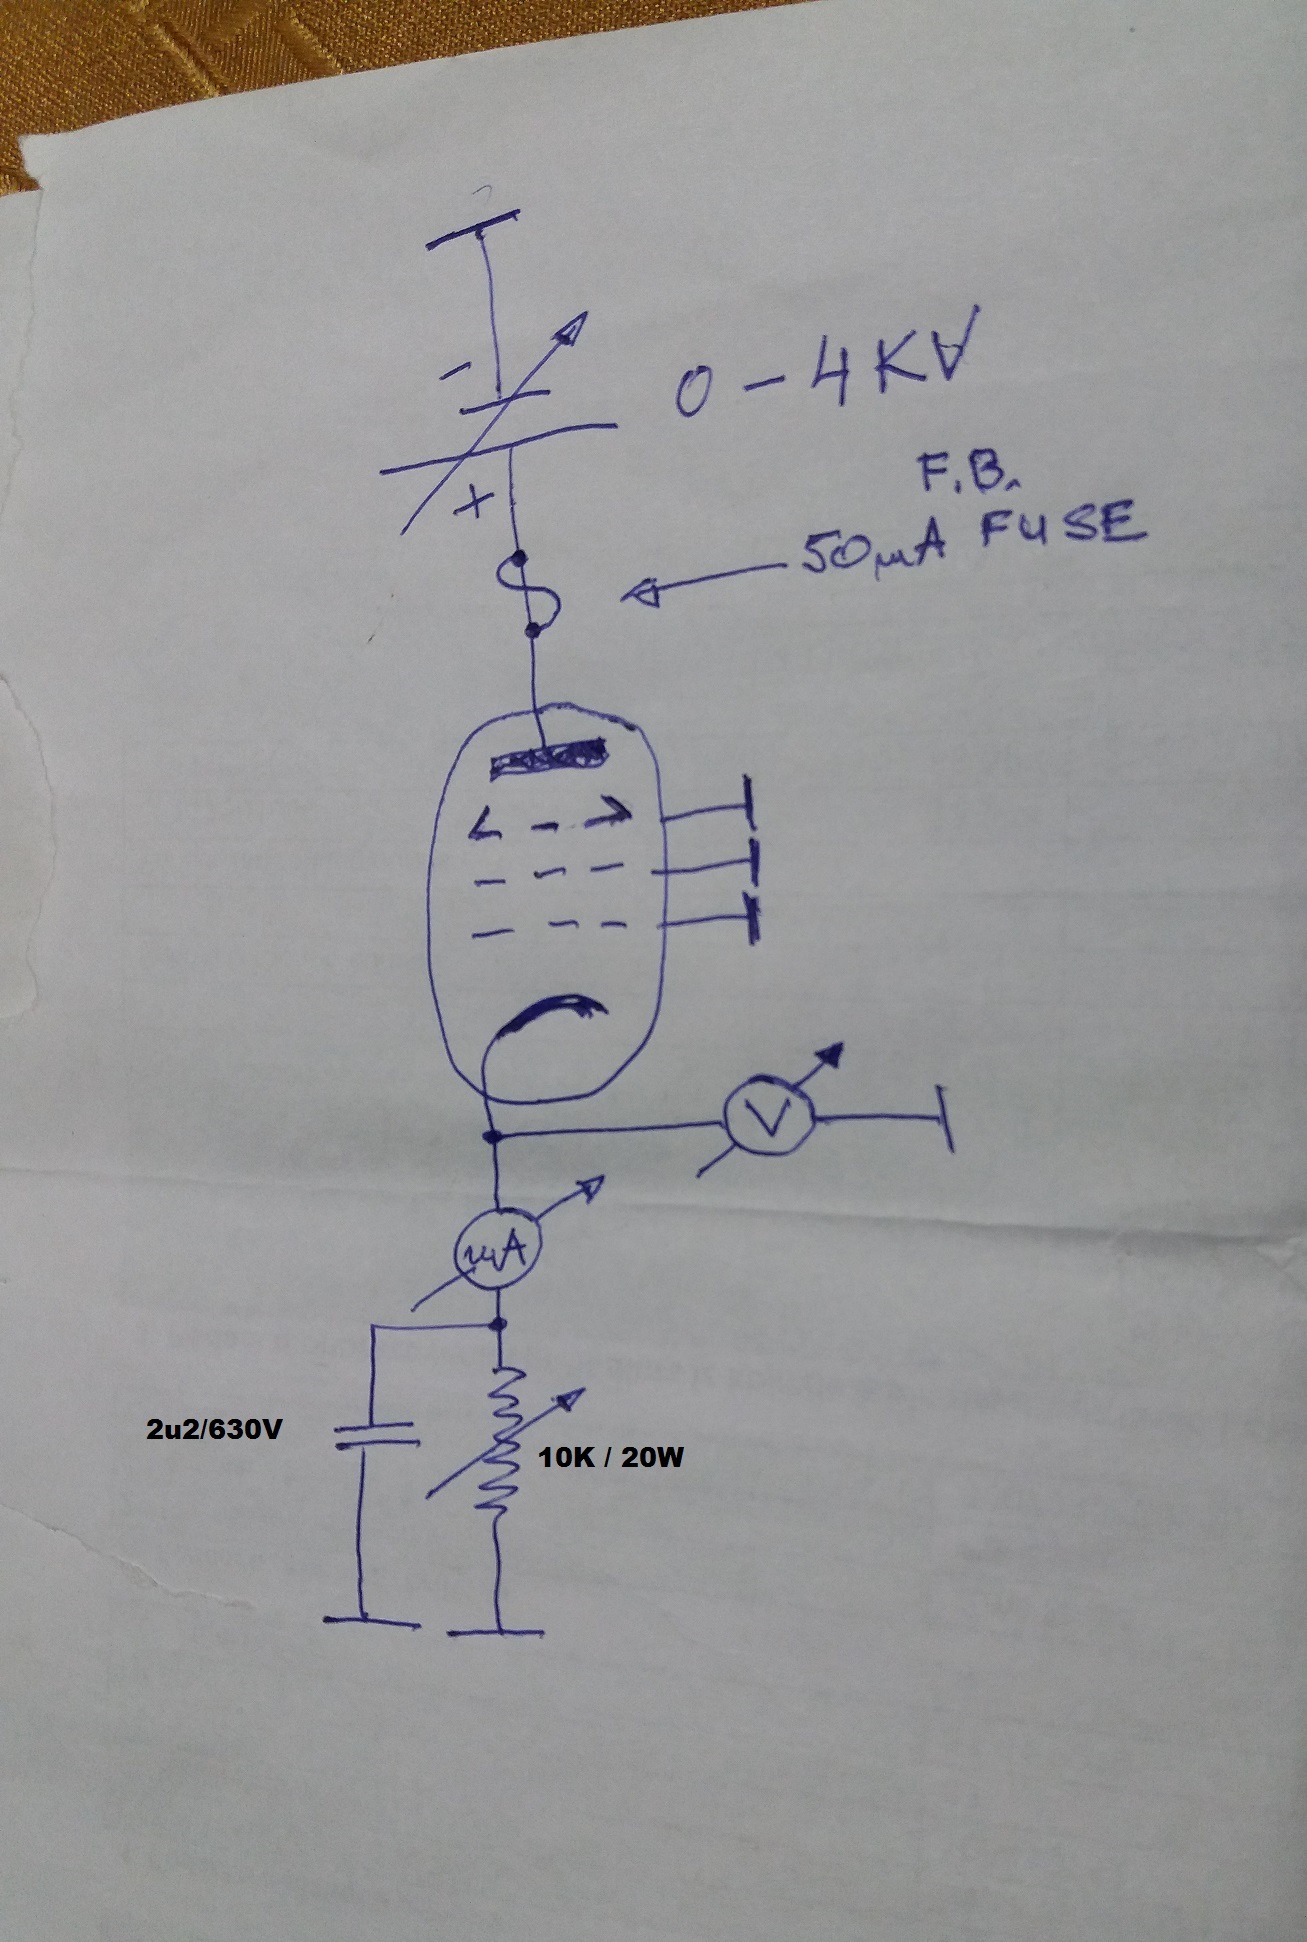 -
0 - 4KV
+
F.B.
50µA FUSE
V
µA
2u2/630V
10K / 20W